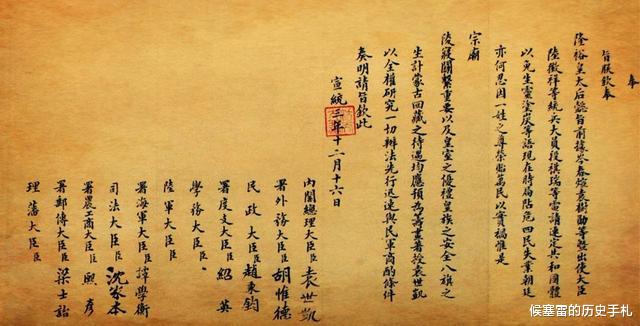 奉
旨朕欽奉
隆裕皇太后懿旨前據岑春煊袁樹勛等暨出使大臣
陸徵祥等統兵大員段祺瑞等電請速定共和國體
以免生靈塗炭等語現在時局阽危四民失業朝廷
亦何忍因一姓之尊榮貽萬民以實禍惟是
宗廟
陵寢關繫重要以及皇室之優禮皇族之安全八旗之
生計蒙古回藏之待遇均應預為籌畫著授袁世凱
以全權研究一切辦法先行迅速與民軍商酌條件
奏明請旨欽此
宣統三年十二月十六日
內閣總理大臣臣袁世凱
署外務大臣臣胡惟德
民政大臣臣趙秉鈞
署度支大臣臣紹英
學務大臣臣
陸軍大臣臣
署海軍大臣臣譚學衡
司法大臣臣沈家本
署農工商大臣臣熙彥
署郵傳大臣臣梁士詒
理藩大臣臣
候塞雷的历史手札